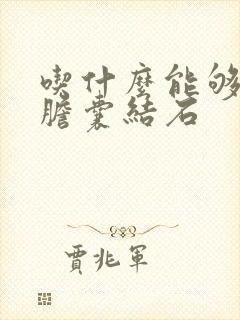 喫什麼能够
膽囊結石
賈兆軍